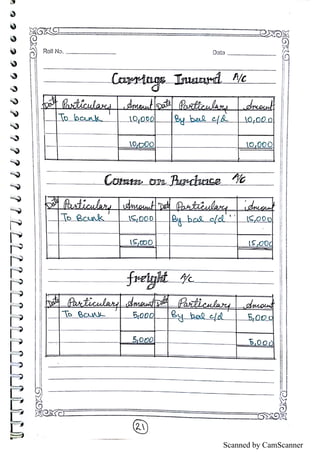 Roll No. Date
Carriage Inward A/c
Date Particulary Amount Date Particulary Amount
To bank 10,000 By bal c/d 10,000
10,000 10,000
Comm on Purchase A/c
Date Particulary Amount Date Particulary Amount
To Bank 15,000 By bal c/d 15,000
15,000 15,000
freight A/c
Date Particulary Amount Date Particulary Amount
To Bank 5,000 By bal c/d 5,000
5,000 5,000
21
Scanned by CamScanner